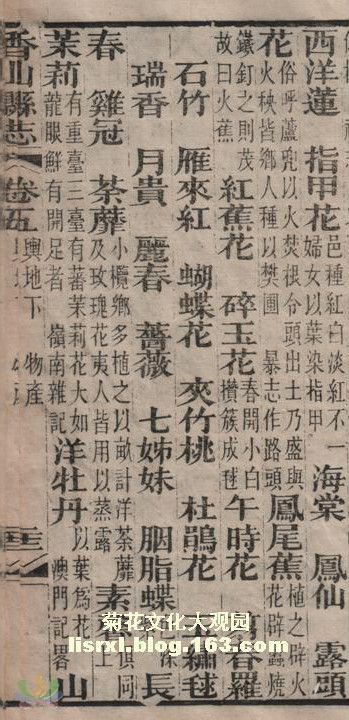 西洋蓮 指甲花 邑種淡紅不一 婦女以葉染指甲 海棠 鳳仙 露頭
花 俗呼蘆兜以火焚根令頭出土乃盛與 火秧皆鄉人種以樊圃 暴志作路頭 鳳尾蕉 植之辟火 花辟蠱燒
鐵釘之則茂 故曰火蕉 紅蕉花 碎玉花 春開小白 攢簇成毬 午時花 春羅
石竹 雁來紅 蝴蝶花 夾竹桃 杜鵑花 繡毬
瑞香 月貴 麗春 薔薇 七姊妹 胭脂蝶 長
春 雞冠 荼蘼 小欖鄉多植之以畝計洋荼蘼 及玫瑰花夷人皆用以蒸露 素 俱同 上
茉莉 有重臺三臺有蕃茉莉花大如 龍眼鮮有開足者 嶺南雜記 洋牡丹 以葉為花 澳門記畧 山
香山縣志 卷五 輿地下 物產
菊花文化大观园
lisrxl.blog.163.com